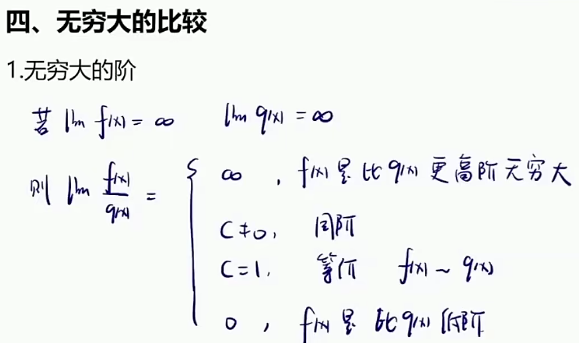 四、无穷大的比较
1.无穷大的阶
若 lim f(x) = ∞ lim g(x) = ∞
则 lim f(x)/g(x) = { ∞ , f(x) 是比 g(x) 更高阶无穷大
C≠0, 同阶
C=1, 等价 f(x) ~ g(x)
0 , f(x) 是比 g(x) 低阶